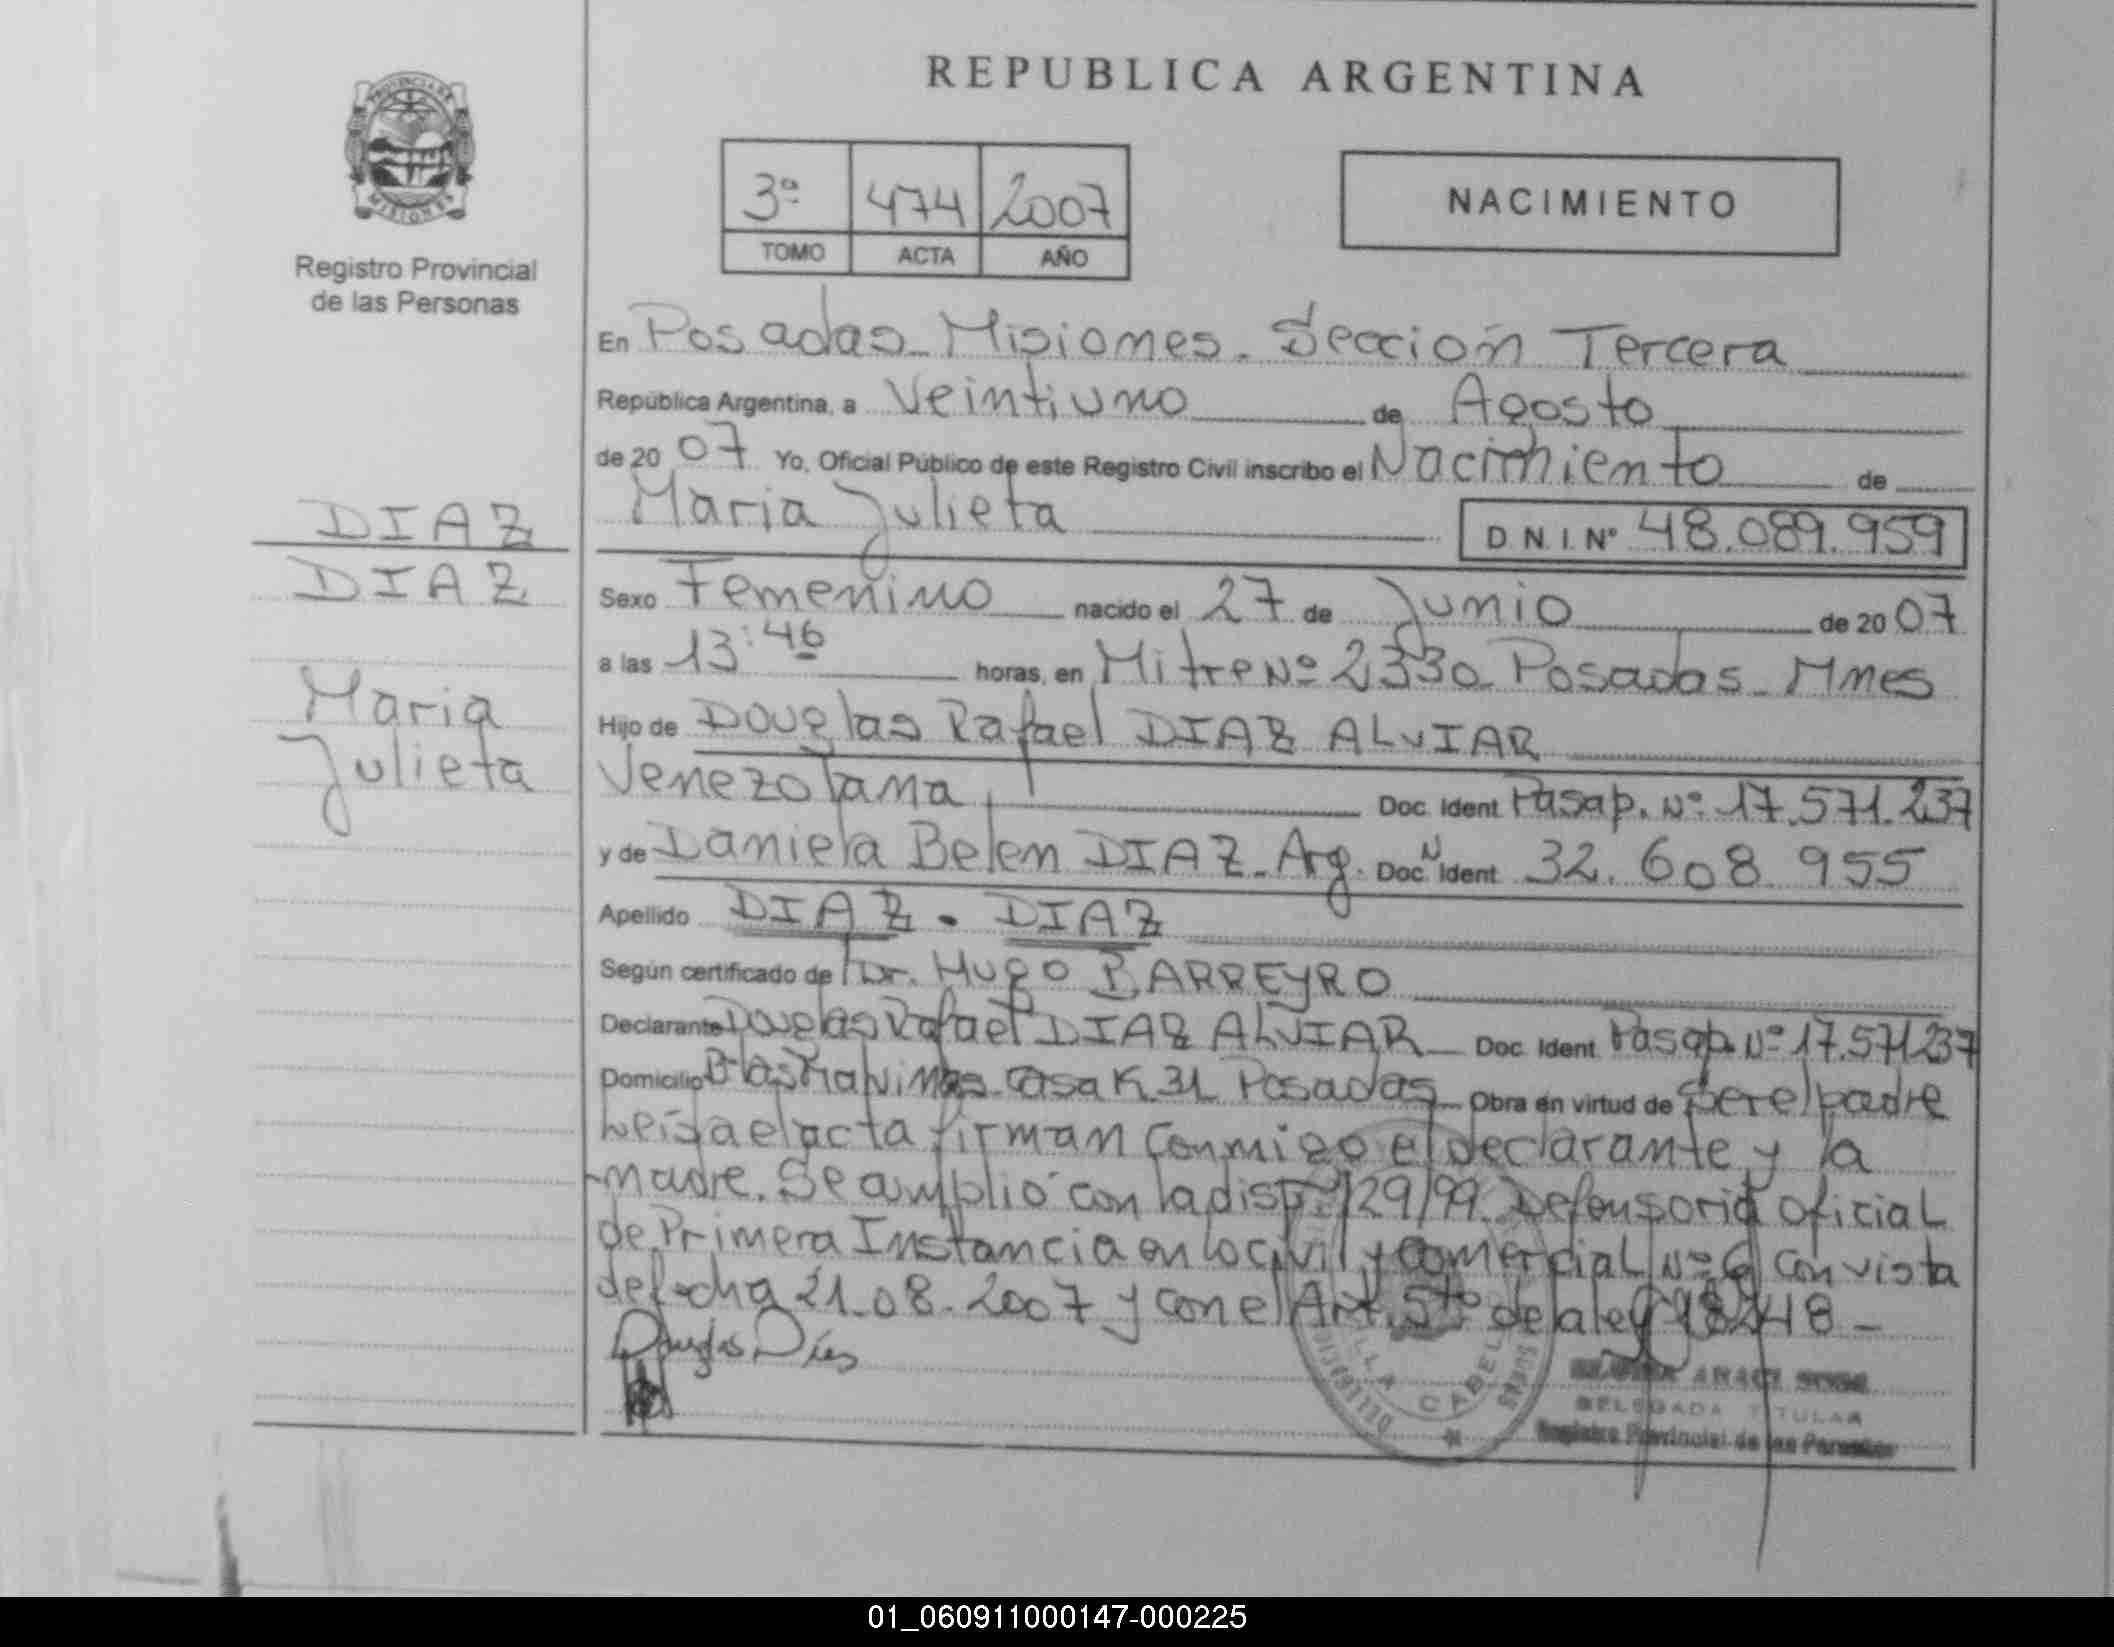 REPUBLICA ARGENTINA
PROVINCIA DE
MISIONES
Registro Provincial
de las Personas
3ª 474 2007
TOMO ACTA AÑO
NACIMIENTO
En Posadas - Misiones - Sección Tercera
República Argentina, a Veintiuno de Agosto
de 20 07 Yo, Oficial Público de este Registro Civil inscribo el Nacimiento de
Maria Julieta D.N.I. Nº 48.089.959
DIAZ
DIAZ
Maria
Julieta
Sexo Femenino nacido el 27 de Junio de 20 07
a las 13:46 horas, en Mitre Nº 2330 - Posadas - Mnes
Hijo de Douglas Rafael DIAZ ALVIAR
Venezolana Doc. Ident Pasap. Nº 17.571.237
y de Daniela Belen DIAZ - Arg. Doc. N Ident 32.608.955
Apellido DIAZ - DIAZ
Según certificado de Dr. Hugo BARREYRO
Declarante Douglas Rafael DIAZ ALVIAR Doc. Ident Pasap. Nº 17.571237
Domicilio Casa K 31 Posadas Obra en virtud de Ser el padre
Leída el acta firman conmigo el declarante y la
madre. Se amplió con la disp. 129/99. Defensoria oficial
de Primera Instancia en lo civil y comercial Nº 6 con vista
de fecha 21.08.2007 y con el Art. 5to de la ley
Douglas Díaz
VILLA CABELLO
DELEGADA TITULAR
Registro Provincial de las Personas
01_060911000147-000225